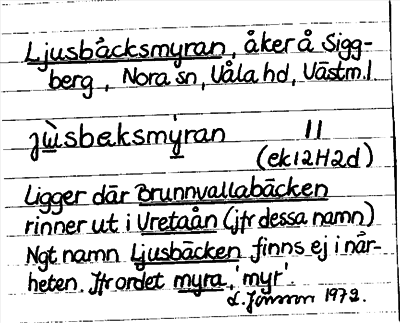 Ljusbäcksmyran, åker å Sigg-
berg, Nora sn, Våla hd, Västm.l
jẁsbeksmýran 11
(ek12H2d)
Ligger där Brunnvallabäcken
rinner ut i Vretaån (jfr dessa namn)
Ngt namn Ljusbäcken finns ej i när-
heten. Jfr ordet myra, 'myr'.
L. Jonsson 1972.